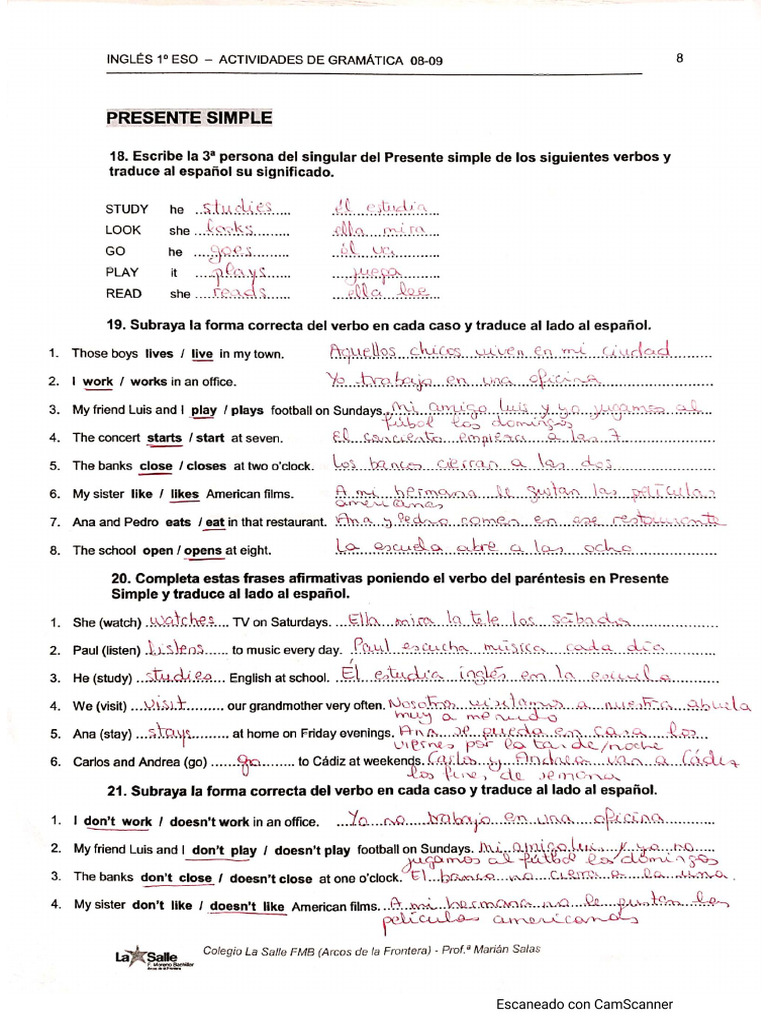 INGLÉS 1º ESO – ACTIVIDADES DE GRAMÁTICA 08-09 8
PRESENTE SIMPLE
18. Escribe la 3ª persona del singular del Presente simple de los siguientes verbos y
traduce al español su significado.
STUDY he studies él estudia
LOOK she looks ella mira
GO he goes él va
PLAY it plays juega
READ she reads ella lee
19. Subraya la forma correcta del verbo en cada caso y traduce al lado al español.
1. Those boys lives / live in my town. Aquellos chicos viven en mi ciudad
2. I work / works in an office. Yo trabajo en una oficina
3. My friend Luis and I play / plays football on Sundays. Mi amigo Luis y yo jugamos al
fútbol los domingos
4. The concert starts / start at seven. El concierto empieza a las 7
5. The banks close / closes at two o'clock. Los bancos cierran a las dos
6. My sister like / likes American films. A mi hermana le gustan las películas
americanas
7. Ana and Pedro eats / eat in that restaurant. Ana y Pedro comen en ese restaurante
8. The school open / opens at eight. La escuela abre a las ocho
20. Completa estas frases afirmativas poniendo el verbo del paréntesis en Presente
Simple y traduce al lado al español.
1. She (watch) watches TV on Saturdays. Ella mira la tele los sábados
2. Paul (listen) listens to music every day. Paul escucha música cada día
3. He (study) studies English at school. Él estudia inglés en la escuela
4. We (visit) visit our grandmother very often. Nosotros visitamos a nuestra abuela
muy a menudo
5. Ana (stay) stays at home on Friday evenings. Ana se queda en casa los
viernes por la tarde/noche
6. Carlos and Andrea (go) go to Cádiz at weekends. Carlos y Andrea van a Cádiz
los fines de semana
21. Subraya la forma correcta del verbo en cada caso y traduce al lado al español.
1. I don't work / doesn't work in an office. Yo no trabajo en una oficina
2. My friend Luis and I don't play / doesn't play football on Sundays. Mi amigo Luis y yo no
jugamos al fútbol los domingos
3. The banks don't close / doesn't close at one o'clock. El banco no cierra a la una.
4. My sister don't like / doesn't like American films. A mi hermana no le gustan las
películas americanas
La Salle
Colegio La Salle FMB (Arcos de la Frontera) - Prof.ª Marián Salas
Escaneado con CamScanner